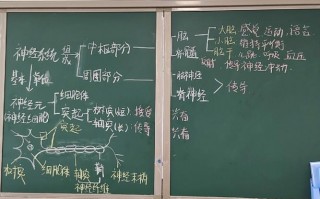 神经系统 组成
中枢部分
周围部分
基本 单位
神经元
神经细胞
细胞体
突起
树突(短) 接受
轴突(长) 传导
突起
树突
细胞体
轴突
神经纤维
神经末梢
脑
大脑 感觉 运动 语言
小脑 维持平衡
脑干 心跳 呼吸 血压
脊髓 反射 传导神经冲动
脑神经
脊神经
传导